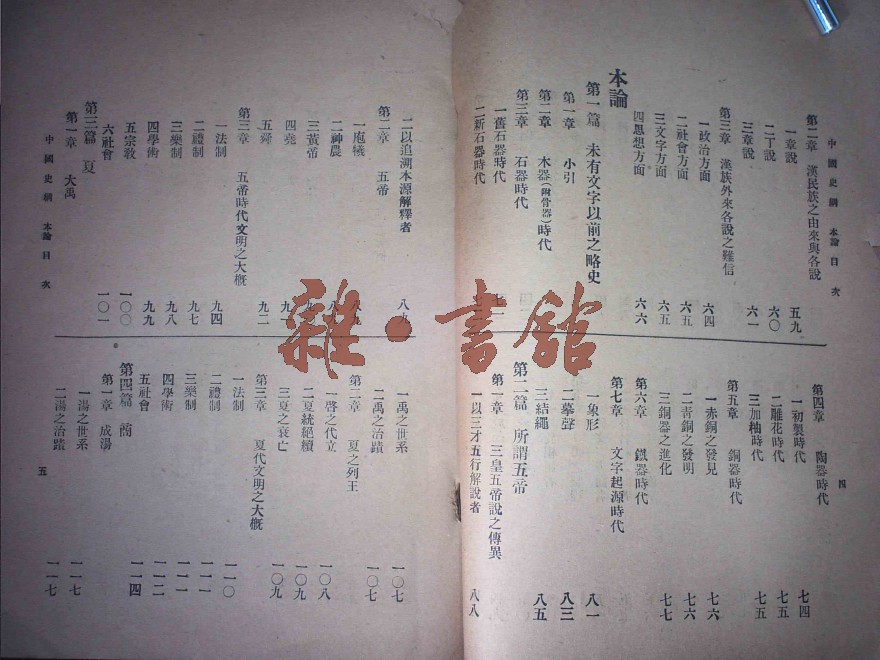 中國史綱 本論目次
第二章 漢民族之由來與各說
一章說 五九
二丁說 六〇
三章說 六一
第三章 漢族外來各說之難信
一政治方面 六四
二社會方面 六五
三文字方面 六五
四思想方面 六六
本論
第一篇 未有文字以前之略史
第一章 小引
第二章 木器(附骨器)時代
第三章 石器時代
一舊石器時代 七一
二新石器時代
第四章 陶器時代
一初製時代 七四
二雕花時代 七五
三加柚時代 七五
第五章 銅器時代
一赤銅之發見 七六
二青銅之發明 七六
三銅器之進化 七七
第六章 鐵器時代
第七章 文字起源時代
一象形 八一
二摹聲 八三
三結繩 八五
第二篇 所謂五帝
第一章 三皇五帝說之傳異
一以三才五行解說者 八八
四
二以追溯本源解釋者 八九
第二章 五帝
一庖犧 八九
二神農
三黃帝
四堯 九一
五舜 九二
第三章 五帝時代文明之大概
一法制 九四
二禮制 九七
三樂制 九八
四學術 九九
五宗教 一〇〇
六社會 一〇一
第三篇 夏
第一章 大禹
中國史綱 本論目次
一禹之世系 一〇七
二禹之治蹟 一〇七
第二章 夏之列王
一啓之代立 一〇八
二夏統絕續 一〇九
三夏之衰亡 一〇九
第三章 夏代文明之大概
一法制 一一〇
二禮制 一一一
三樂制 一一一
四學術 一一二
五社會 一一四
第四篇 商
第一章 成湯
一湯之世系 一一七
二湯之治蹟 一一七
五
雜·書館